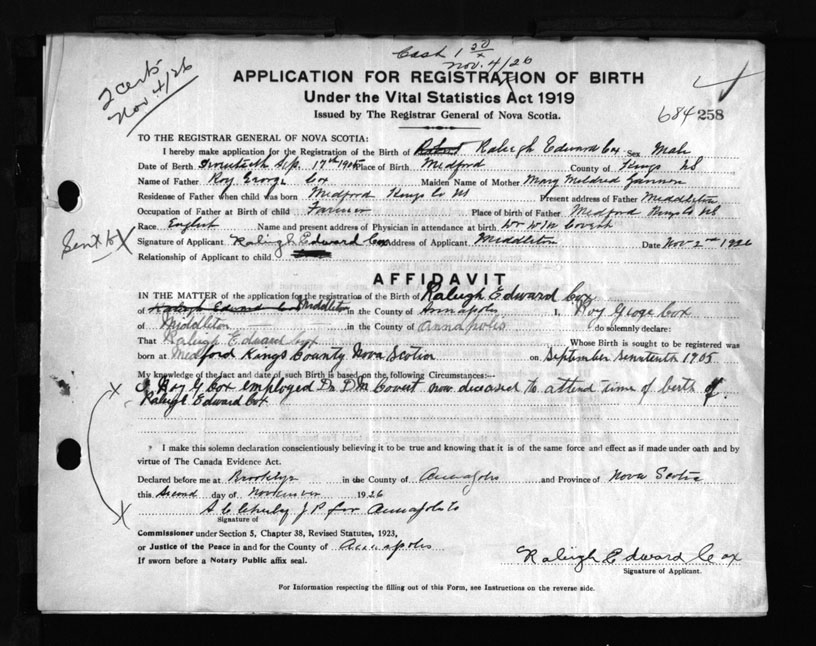 Cash 1 50/x
Nov. 4/26
2 certs
Nov. 4/26
APPLICATION FOR REGISTRATION OF BIRTH
Under the Vital Statistics Act 1919
Issued by The Registrar General of Nova Scotia.
684 258
TO THE REGISTRAR GENERAL OF NOVA SCOTIA:
I hereby make application for the Registration of the Birth of Raleigh Edward Cox Sex Male
Date of Birth Sep. 17th 1905 Place of Birth Medford County of Kings NS
Name of Father Roy George Cox Maiden Name of Mother Mary Mildred Gannon
Residense of Father when child was born Medford Kings Co NS Present address of Father Middleton
Occupation of Father at Birth of child Farmer Place of birth of Father Medford Kings Co NS
Race English Name and present address of Physician in attendance at birth Dr Covert
Signature of Applicant Raleigh Edward Cox Address of Applicant Middleton Date Nov 2nd 1926
Relationship of Applicant to child
AFFIDAVIT
IN THE MATTER of the application for the registration of the Birth of Raleigh Edward Cox
of Raleigh Edward Cox Middleton in the County of Annapolis I, Roy Geoge Cox
of Middleton in the County of annapolis do solemnly declare:
That Raleigh Edward Cox Whose Birth is sought to be registered was
born at Medford Kings County Nova Scotia on September 1905
My knowledge of the fact and date of such Birth is based on the following Circumstances:—
I Roy G Cox employed Dr. D M Covert now deceased to attend time of birth of
Raleigh Edward Cox
I make this solemn declaration conscientiously believing it to be true and knowing that it is of the same force and effect as if made under oath and by
virtue of The Canada Evidence Act.
Declared before me at Brooklyn in the County of Annapolis and Province of Nova Scotia
this Second day of November 1926
J P for Annapolis Co
Signature of
Commissioner under Section 5, Chapter 38, Revised Statutes, 1923,
or Justice of the Peace in and for the County of Annapolis
If sworn before a Notary Public affix seal.
Raleigh Edward Cox
Signature of Applicant.
For Information respecting the filling out of this Form, see Instructions on the reverse side.